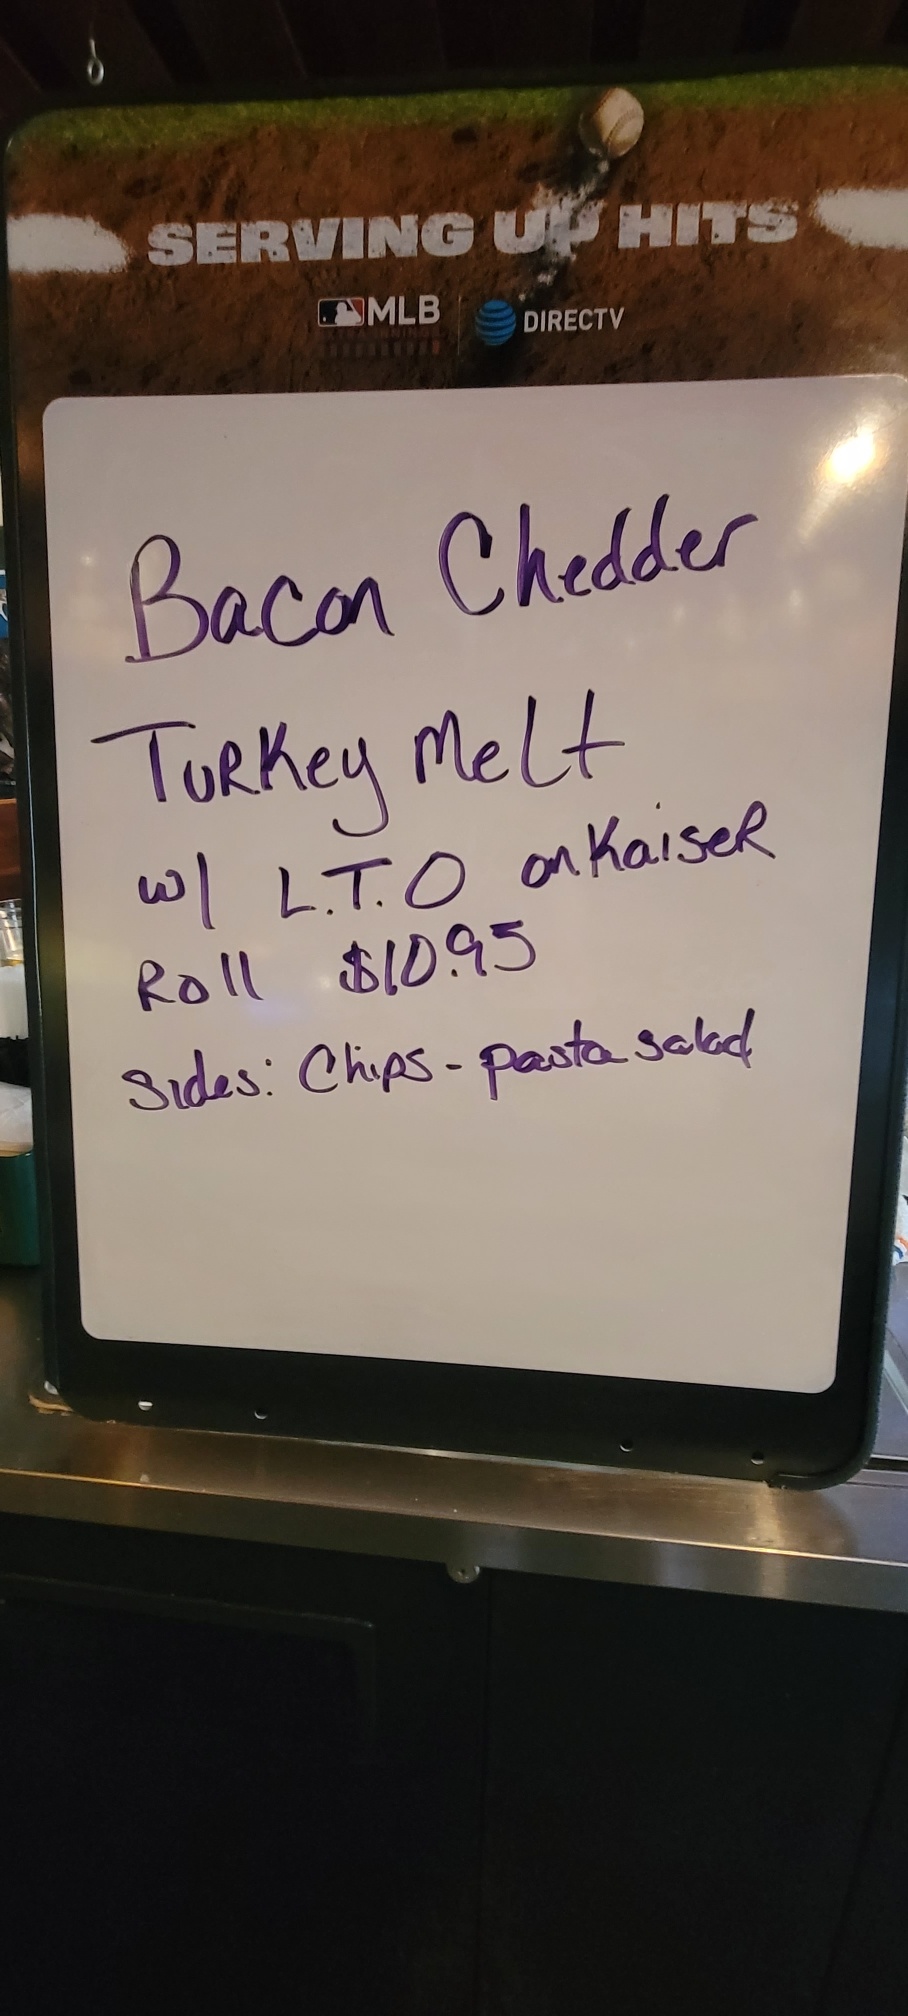 SERVING UP HITS
MLB DIRECTV
Bacon Chedder
Turkey Melt
w/ L.T.O on Kaiser
Roll $10.95
Sides: Chips - pasta salad